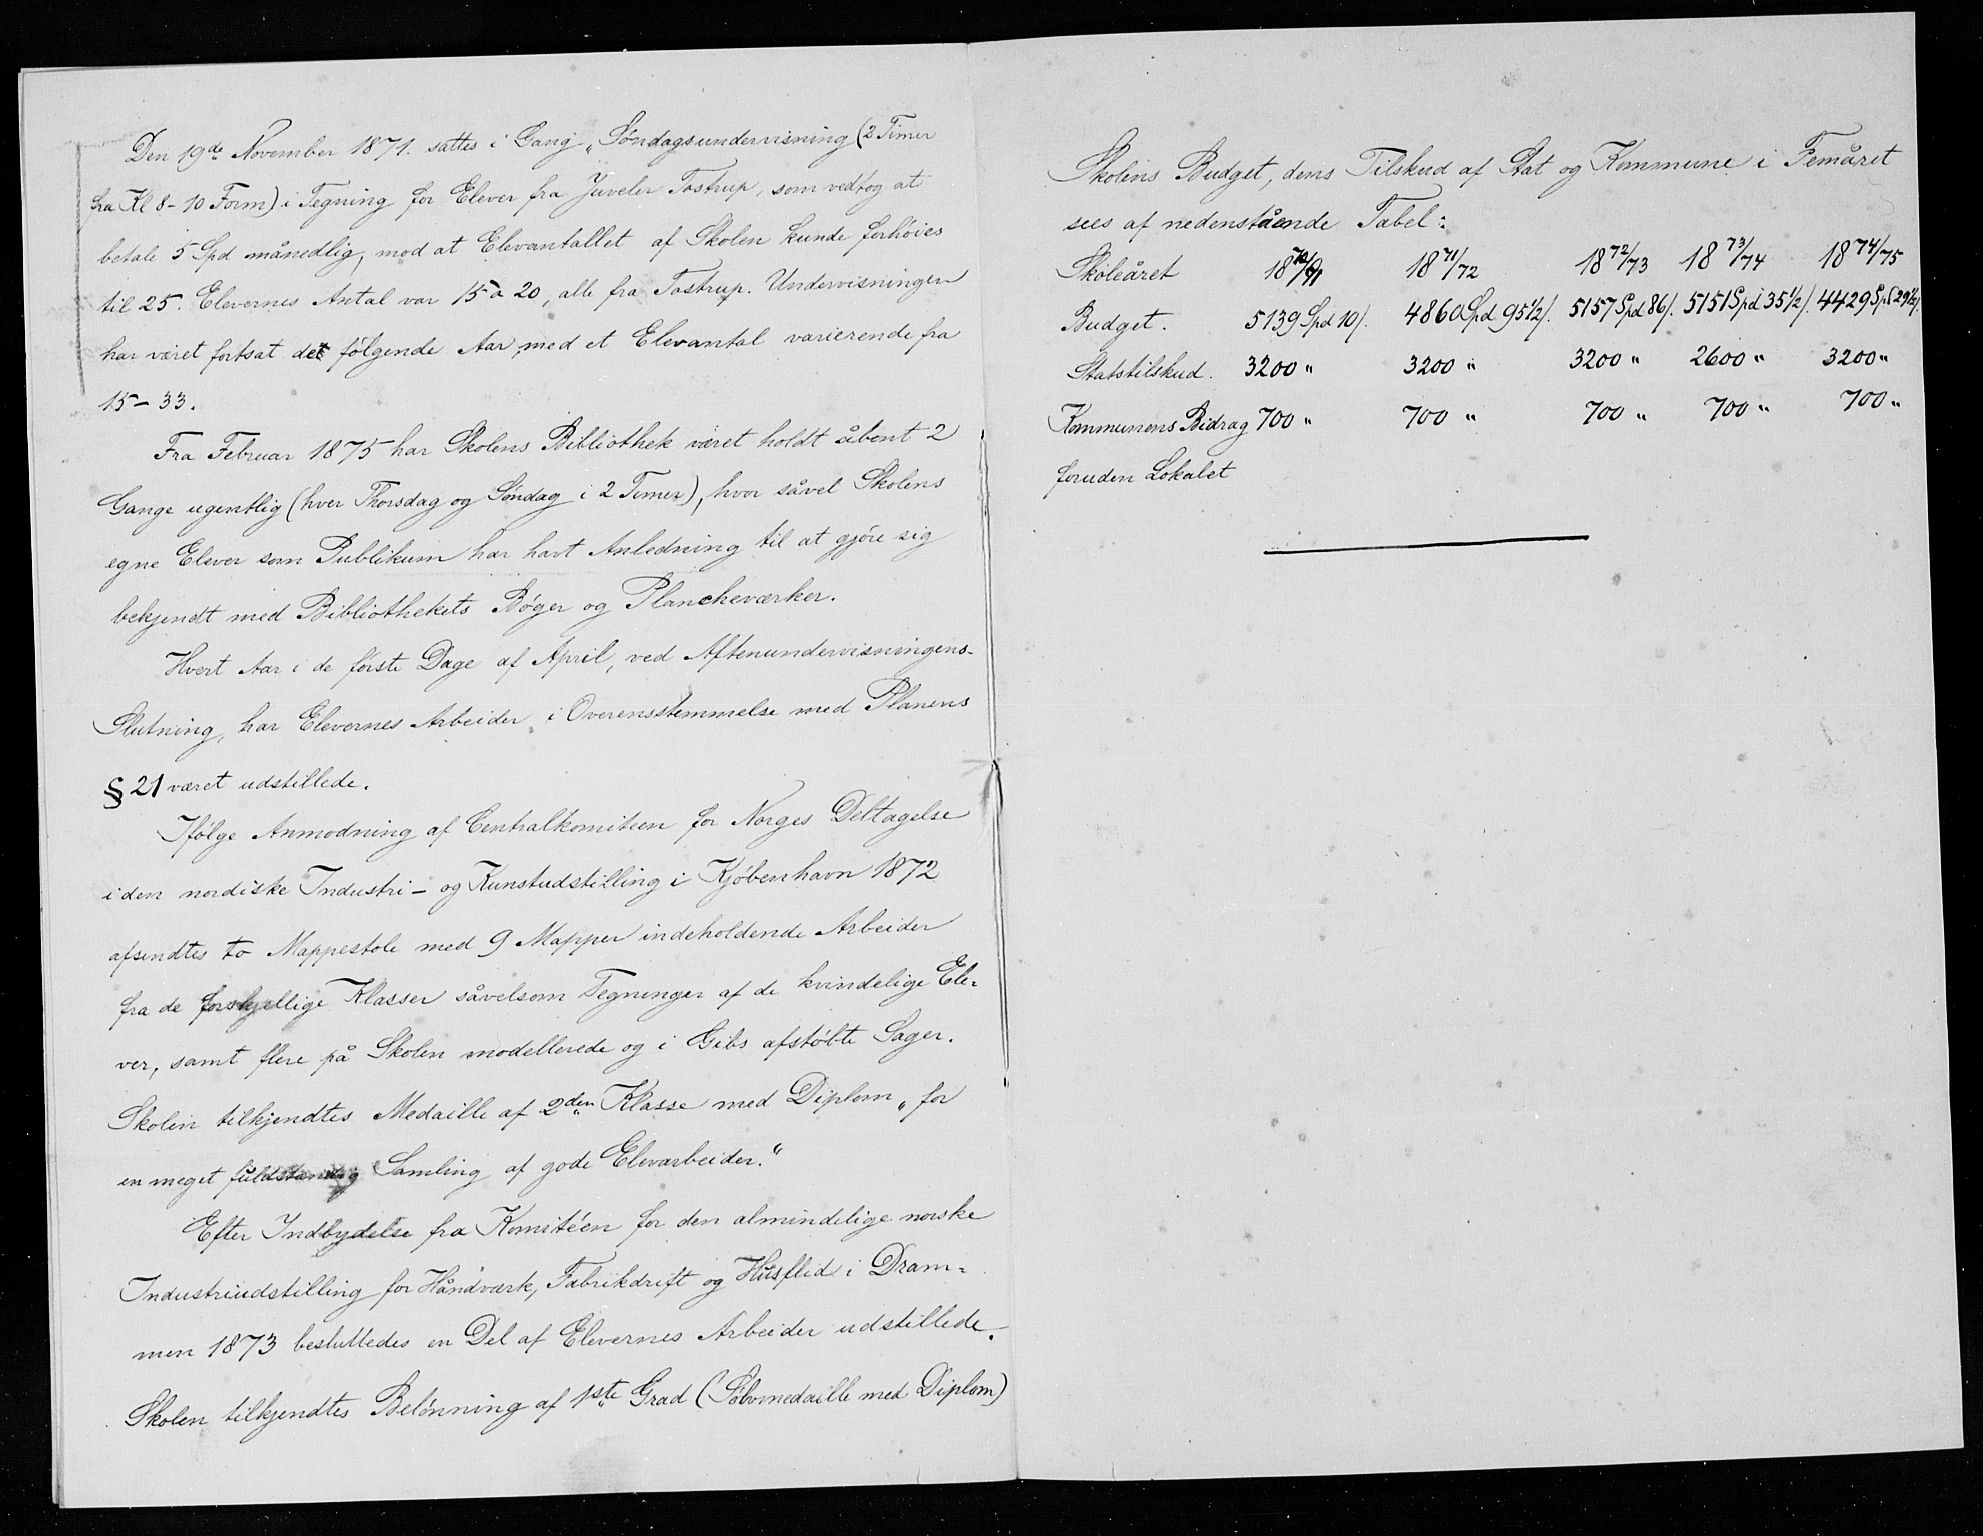 Den 19de November 1871. sattes i Gang „Søndagsundervisning (2 Timer
fra Kl 8-10 Form) i Tegning for Elever fra Juveler Tostrup, som vedtog at
betale 5 Spd månedlig, mod at Elevantallet af Skolen kunde forhøies
til 25. Elevernes Antal var 15 à 20, alle fra Tostrup. Undervisningen
har været fortsat det følgende Aar med et Elevantal varierende fra
15-33.
Fra Februar 1875 har Skolens Bibliothek været holdt åbent 2
Gange ugentlig (hver Thorsdag og Søndag i 2 Timer), hvor såvel Skolens
egne Elever som Publikum har havt Anledning til at gjöre sig
bekjendt med Bibliothekets Bøger og Plancheværker.
Hvert Aar i de første Dage af April, ved Aftenundervisningens
Slutning, har Elevernes Arbeider i Overensstemmelse med Planens
§ 21 været udstillede.
Ifölge Anmodning af Centralkomiteen for Norges Deltagelse
i den nordiske Industri- og Kunstudstilling i Kjöbenhavn 1872
afsendtes to Mappestole med 9 Mapper indeholdende Arbeider
fra de forskjellige Klasser såvelsom Tegninger af de kvindelige Ele-
ver, samt flere på Skolen modellerede og i Gibs afstöbte Sager.
Skolen tilkjendtes Medaille af 2den Klasse med Diplom „for
en meget fuldstændig Samling af gode Elevarbeider.“
Efter Indbydelse fra Komitéen for den almindelige norske
Industriudstilling for Håndværk, Fabrikdrift og Husflid i Dram-
men 1873 besluttedes en Del af Elevernes Arbeider udstillede.
Skolen tilkjendtes Belönning af 1ste Grad (Sölvmedaille med Diplom)
Skolens Budget, dens Tilskud af Stat og Kommune i Femåret
sees af nedenstående Tabel:
Skoleåret 1870/71 1871/72 1872/73 1873/74 1874/75
Budget. 5139 Spd 10/. 4860 Spd 95 1/2/. 5157 Spd 86/. 5151 Spd 35 1/2/. 4429 Spd 29 1/2/.
Statstilskud. 3200 „ 3200 „ 3200 „ 2600 „ 3200 „
Kommunens Bidrag 700 „ 700 „ 700 „ 700 „ 700 „
foruden Lokalet